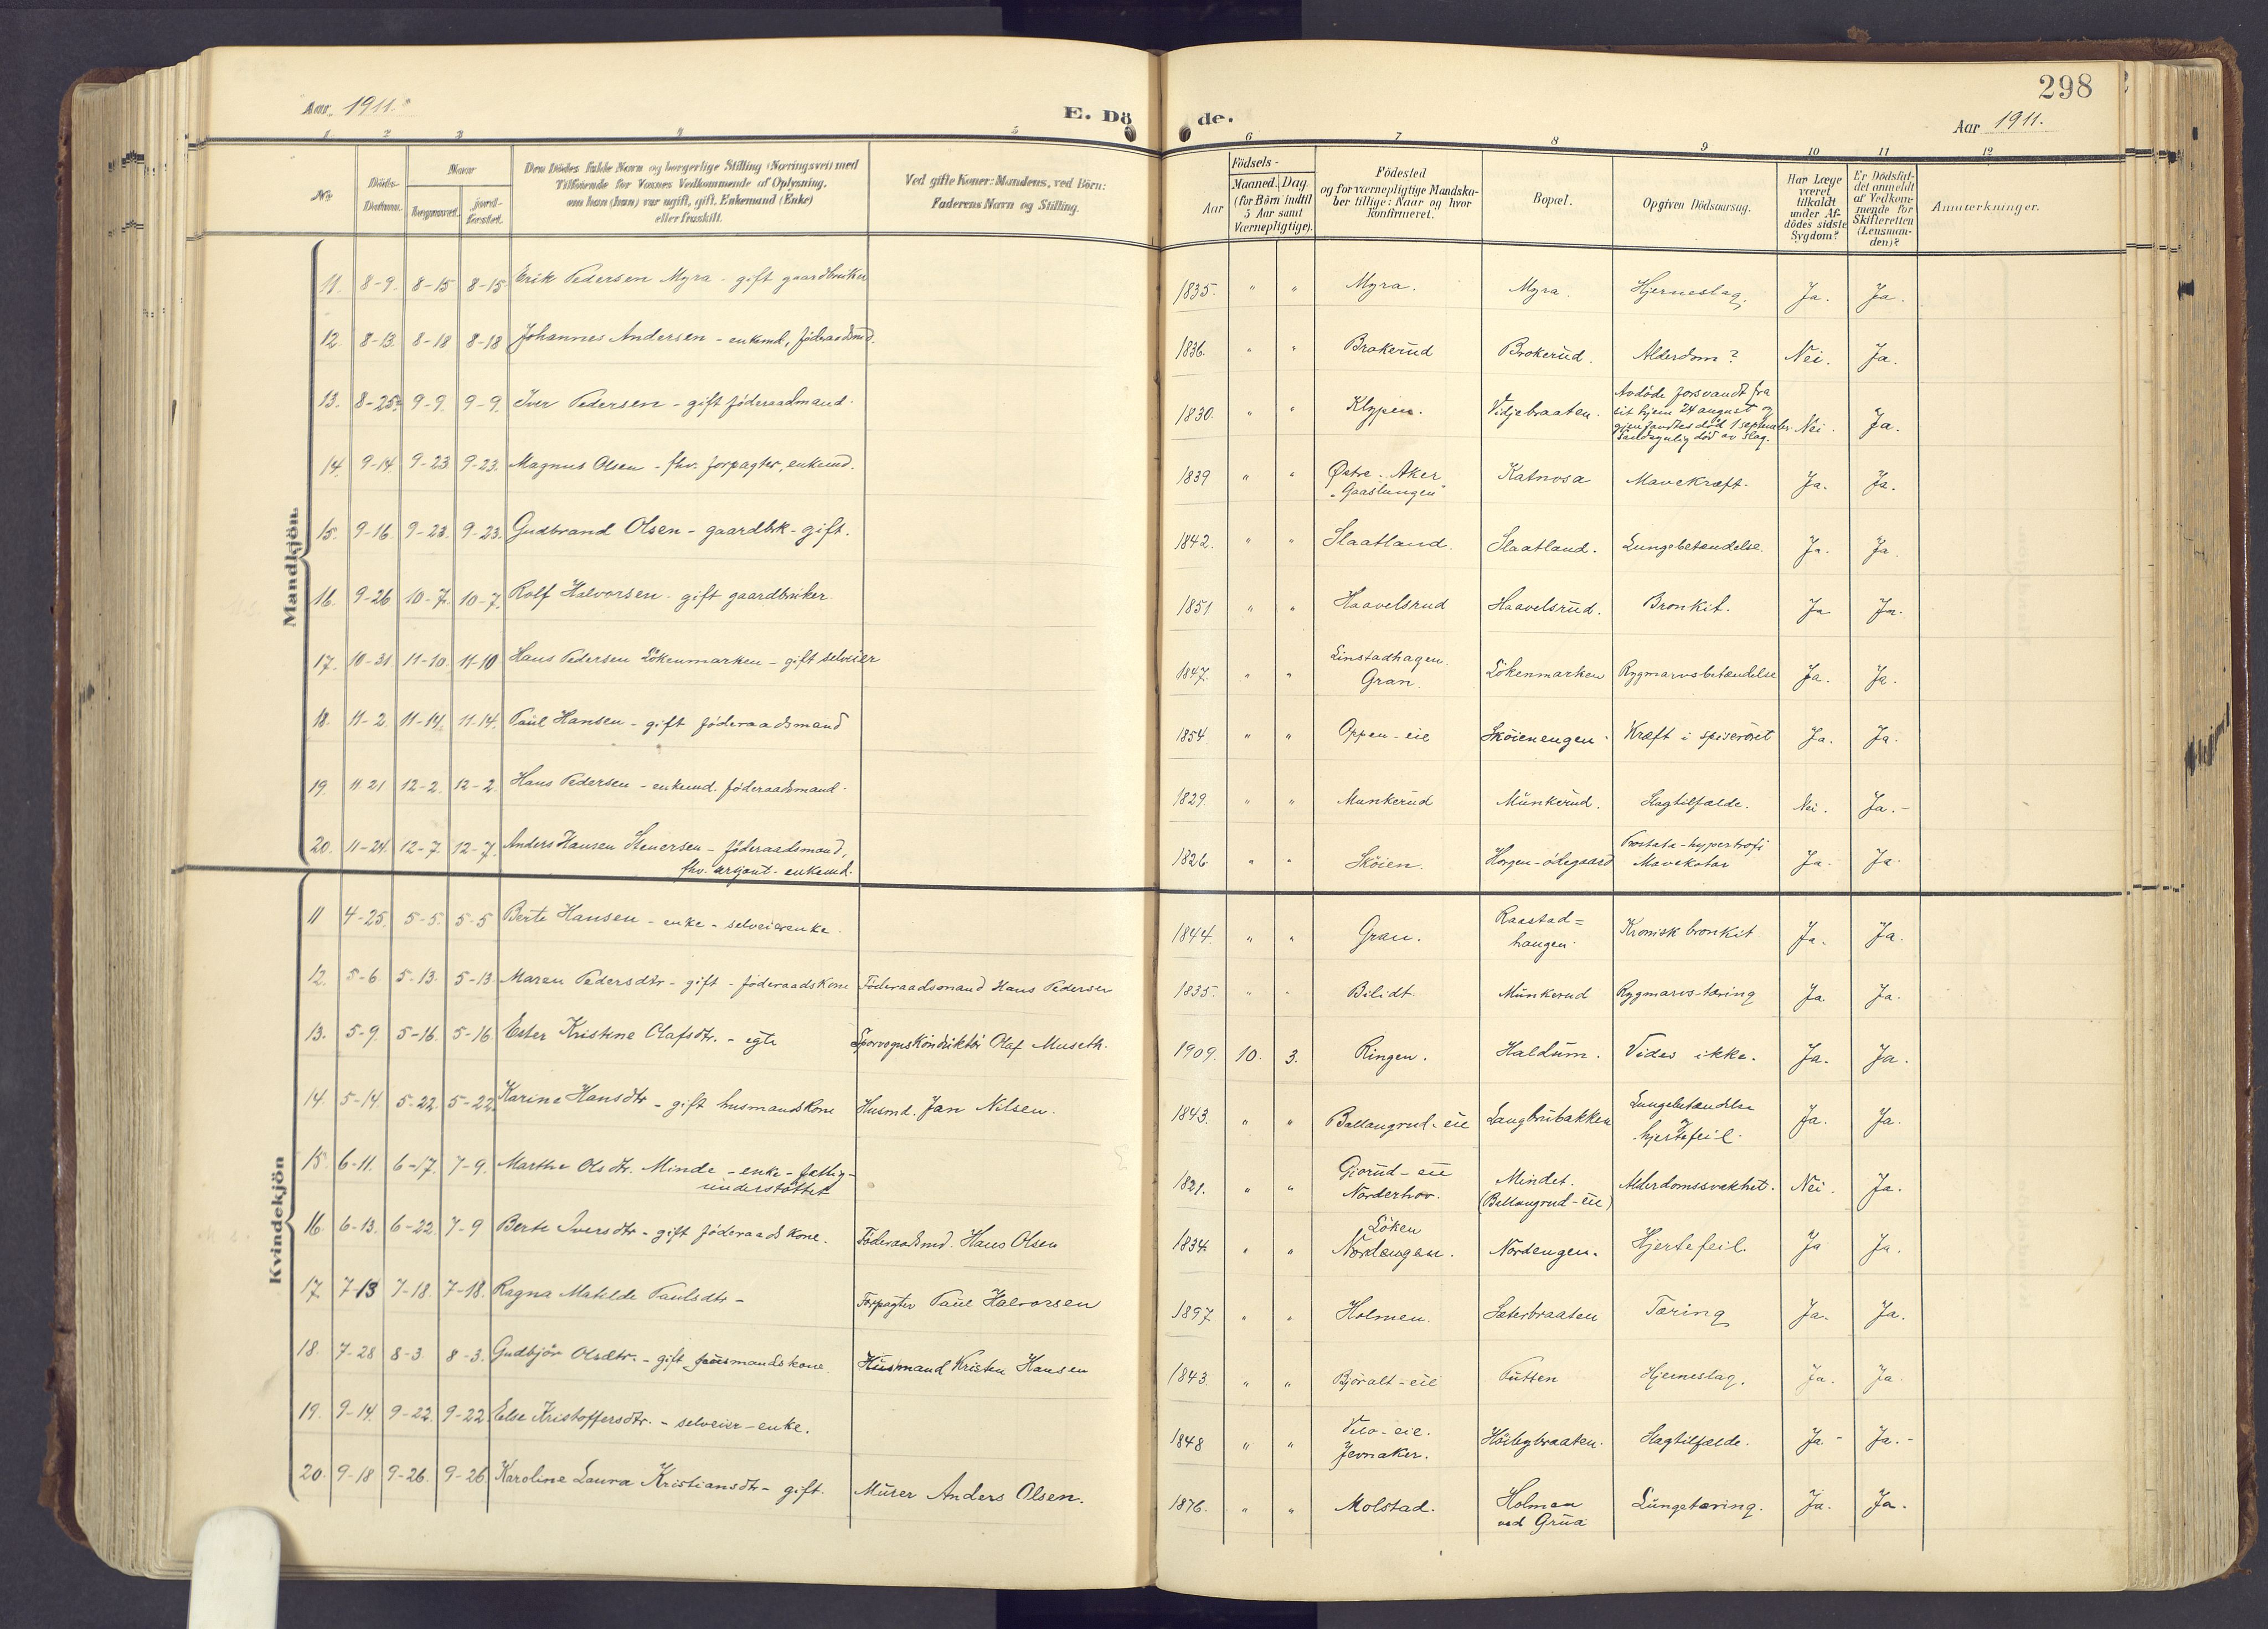 298
Aar 1911.
E. Dö de.
Aar 1911.
1 2 3 4 5 6 7 8 9 10 11 12
No.
Døds-Datum.
Naar
begravet.
jord-fæstet.
Den Dödes fulde Navn og borgerlige Stilling (Næringsvei) med
Tilföiende for Voxnes Vedkommende af Oplysning,
om han (hun) var ugift, gift, Enkemand (Enke)
eller fraskilt.
Ved gifte Koner: Mandens, ved Börn:
Faderens Navn og Stilling.
Födsels-
Aar
Maaned. Dag
(for Börn indtil
5 Aar samt
Værnepligtige).
Födested
og for værnepligtige Mandska-
ber tillige: Naar og hvor
konfirmeret.
Bopæl.
Opgiven Dödsaarsag.
Har Læge
været
tilkaldt
under Af-
dödes sidste
Sygdom?
Er Dödsfal-
det anmeldt
af Vedkom-
mende for
Skifteretten
(Lensman-
den)?
Anmærkninger.
Mandkjön.
11. 8-9. 8-15 8-15 Erik Pedersen Myra - gift gaardbruker 1835. " " Myra. Myra. Hjerneslag. Ja. Ja.
12. 8-13. 8-18 8-18 Johannes Andersen - enkemd, föderaadsmd. 1836. " " Brakerud Brokerud. Alderdom? Nei. Ja.
13. 8-25? 9-9. 9-9. Iver Pedersen - gift föderaadmand. 1830. " " Klypen. Vidjebraaten. Avdöde forsvandt fra
sit hjem 24 august og
gjenfandtes död 1 september
Sandsynlig död av slag. Nei. Ja.
14. 9-14. 9-23 9-23. Magnus Olsen - fhv. forpagter, enkemd. 1839 " " Østre-Aker
"Gaaslungen" Katnosa Mavekræft. Ja. Ja.
15. 9-16. 9-23. 9-23. Gudbrand Olsen - gaardbrk - gift. 1842. " " Slaatland. Slaatland. Lungebetændelse. Ja. Ja.
16. 9-26 10-7. 10-7. Rolf Halvorsen - gift gaardbruker. 1851 " " Haavelsrud Haavelsrud. Bronkit. Ja Ja.
17. 10-31 11-10. 11-10 Hans Pedersen Lökenmarken - gift selveier 1847. " " Linstadhagen.
Gran. Lökenmarken Rygmarvsbetændelse Ja. Ja.
18. 11-2. 11-14. 11-14. Paul Hansen - gift föderaadsmand 1854. " " Oppen-eie Sköienengen. Kræft i spiseröret Ja. Ja.
19. 11 21 12-2. 12-2. Hans Pedersen - enkemd. föderaadsmand. 1829. " " Munkerud Munkerud. Slagtilfælde. Nei. Ja.-
20. 11-24. 12-7. 12-7. Anders Hansen Stenersen - föderaadsmand,
fhv. serjant - enkemd. 1826 " " Sköien. Horgen-ödegaard Prostata-hypertrofi
Mavekatar Ja. Ja.
Kvindekjön
11 4-25. 5-5. 5-5 Berte Hansen - enke - selveierenke. 1844. " " Gran. Raastad=
haugen. Kronisk bronkit Ja. Ja.
12. 5-6. 5-13. 5-13. Maren Pedersdtr - gift - föderaadskone Föderaadsmand Hans Pedersen 1835. " " Bilidt. Munkerud Rygmarvs-tæring Ja Ja.
13. 5-9. 5-16. 5-16. Ester Kristine Olafsdtr. - egte Sporvognskonduktör Olaf Museth. 1909. 10. 3. Ringen. Haldum. Vides ikke. Ja. Ja.
14. 5-14. 5-22. 5-22. Karine Hansdtr - gift husmandskone Husmd. Jan Nilsen. 1843. " " Ballangrud-eie Langbrubakken Lungebetændelse
og
hjertefeil. Ja. Ja.
15. 6-11. 6-17. 7-9. Marthe Olsdtr. Minde - enke - fattig-
understöttet 1821. " " Gjorud-eie
Norderhov. Mindet.
(Ballangrud-eie) Alderdomssvakhet. Nei. Ja.
16. 6-13. 6-22. 7-9 Berte Iversdtr - gift föderaadskone. Föderaadsmd. Hans Olsen 1834. " " Löken
Nordengen. Nordengen. Hjertefeil. Ja Ja.
17. 7-13 7-18. 7-18. Ragna Matilde Paulsdtr - Forpagter Paul Halvorsen 1897. " " Holmen. Sæterbraaten Tæring Ja. Ja.
18. 7-28 8-3. 8-3. Gudbjör Olsdtr. - gift husmandskone Husmand Kristen Hansen 1843. " " Björalt-eie Putten Hjerneslag. Ja. Ja.
19. 9-14. 9-22. 9-22. Else Kristoffersdtr. - selveier-enke. 1848 " " Velo-eie.
Jevnaker. Höibybraaten. Slagtilfælde. Ja.- Ja.-
20. 9-18 9-26. 9-26 Karoline Laura Kristiansdtr - gift. Murer Anders Olsen. 1876. " " Molstad. Holmen
ved Grua Lungetæring. Ja. Ja.